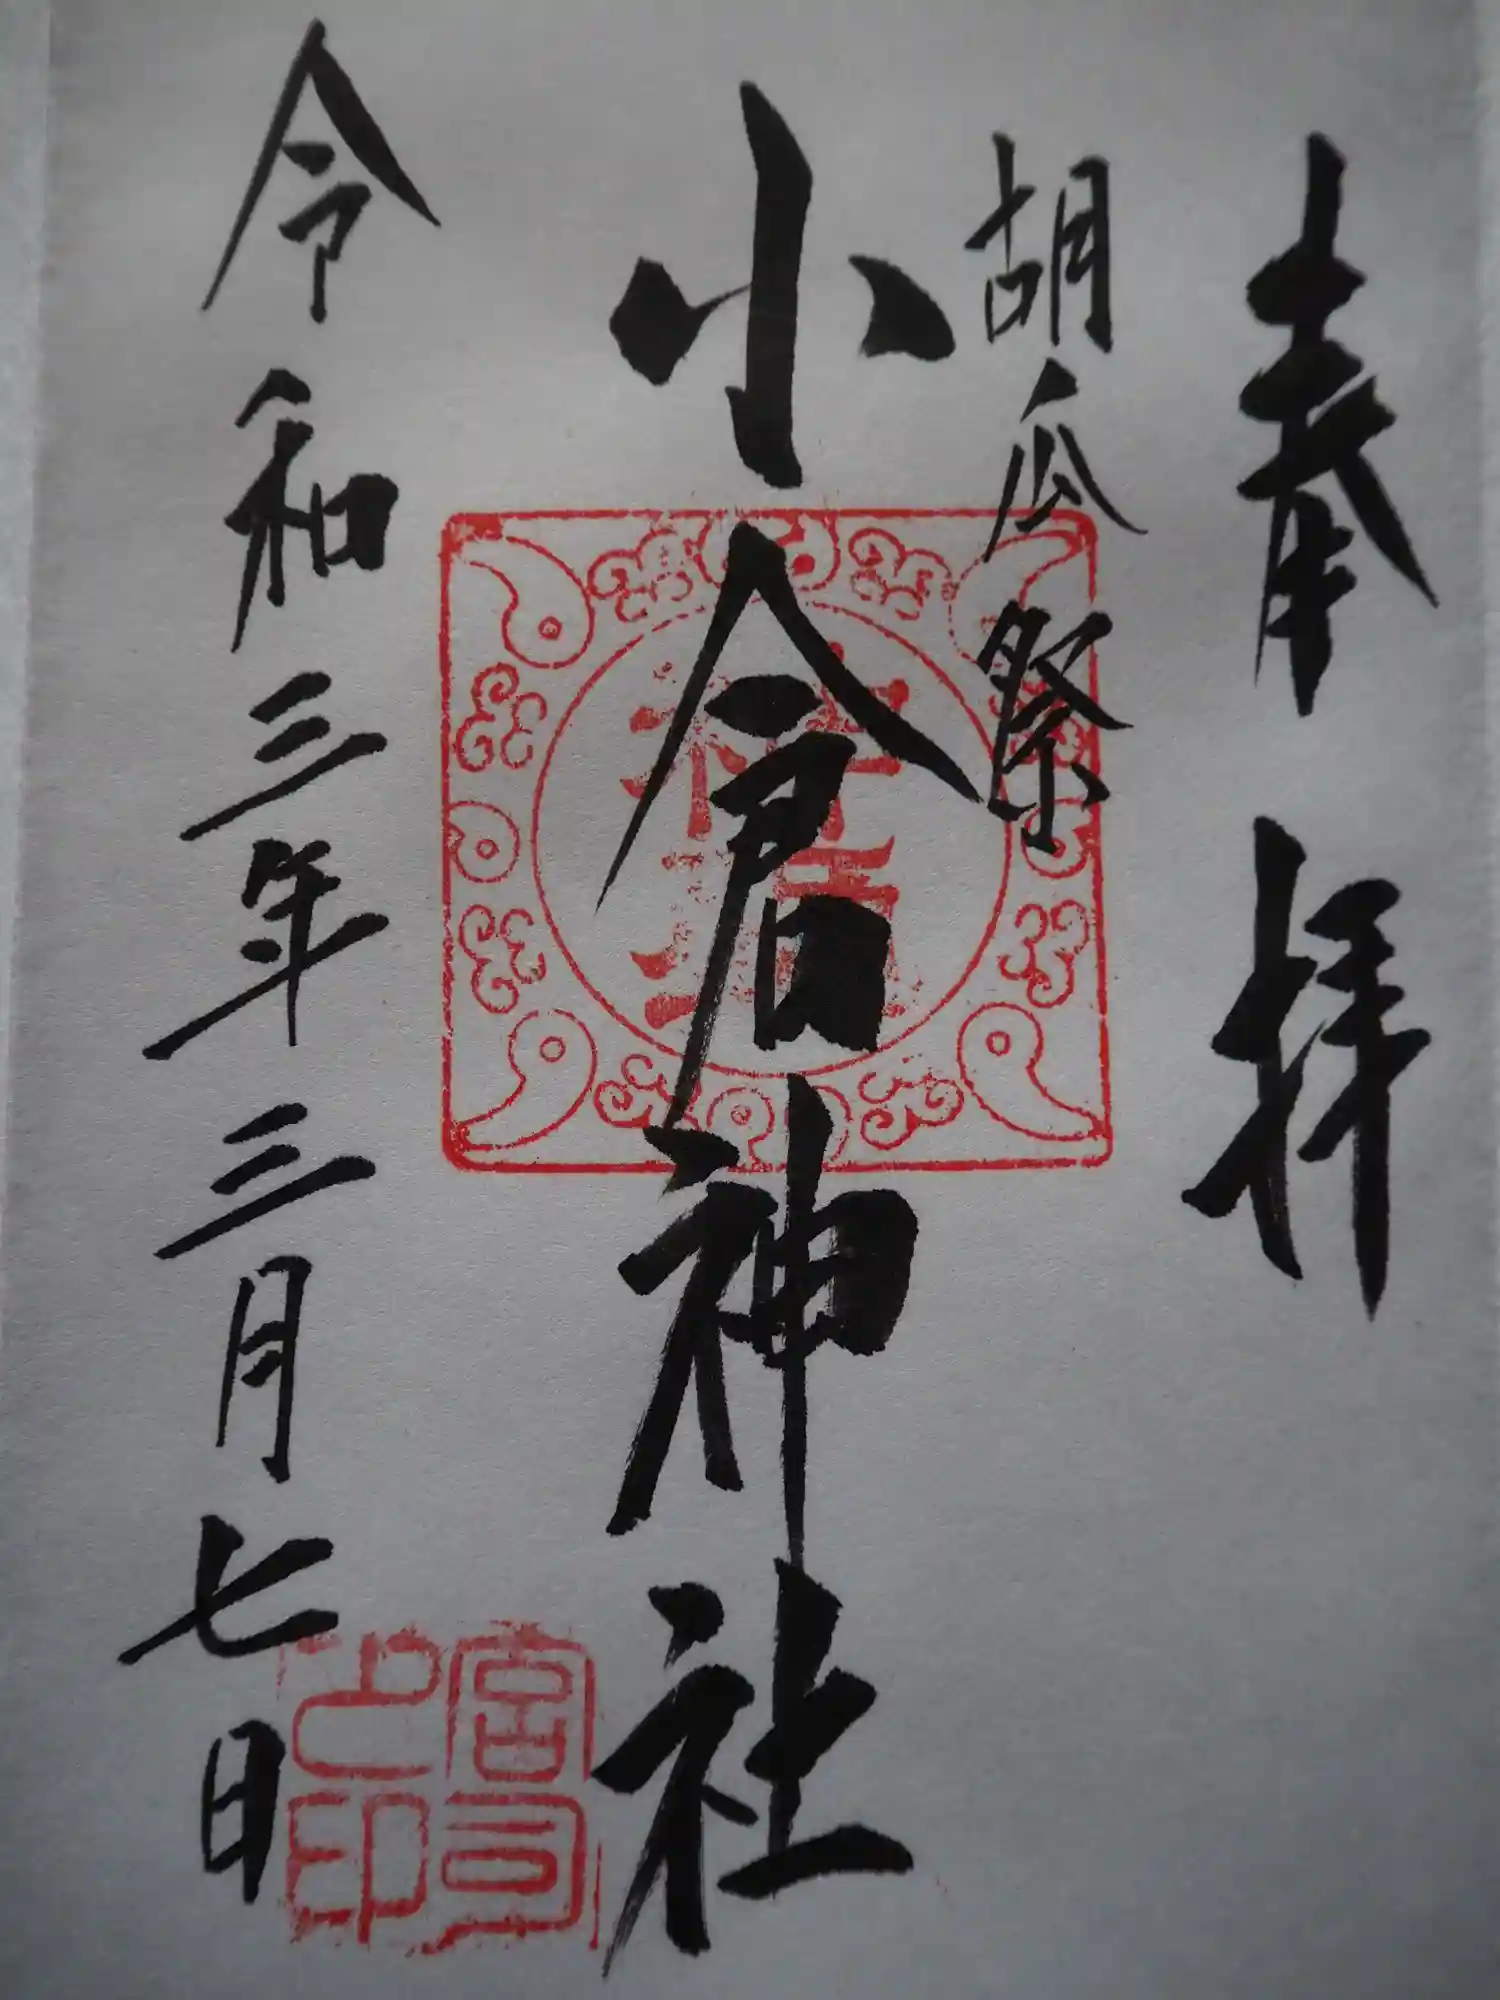 奉拝
胡瓜祭
小倉神社
令和三年三月七日
宮司之印